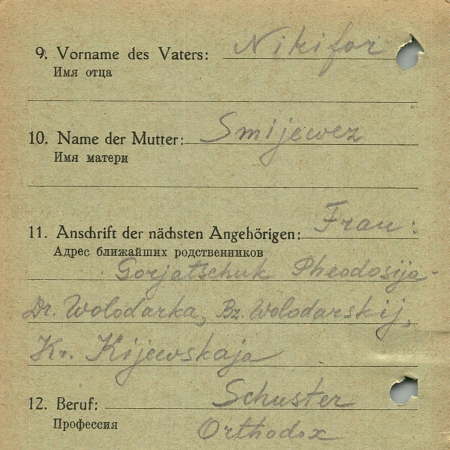 9. Vorname des Vaters: Nikifor
Имя отца
10. Name der Mutter: Smijewez
Имя матери
11. Anschrift der nächsten Angehörigen: Frau:
Адрес ближайших родственников
Gorjatschuk Pheodosija-
Dr. Wolodarka, Bz. Wolodarskij,
Kr. Kijewskaja
12. Beruf: Schuster
Профессия
Orthodox